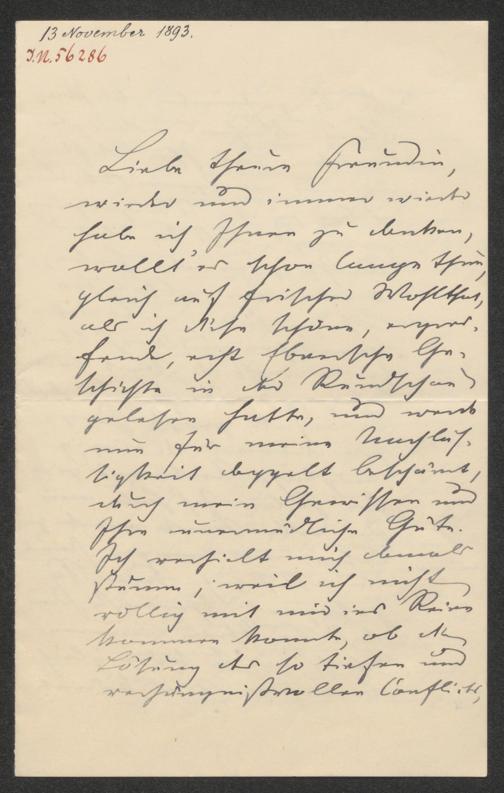 13 November 1893.
I.N. 56286
Liebe theure Freundin,
wieder und immer wieder
habe ich Ihnen zu danken,
wollt' es schon lange thun,
gleich auf frischer Wohlthat,
als ich diese schöne, ergrei-
fende, echt Ebnerische Ge-
schichte in der Rundschau
gelesen hatte, und werde
nun für meine Nachläs-
sigkeit doppelt beschämt,
durch mein Gewissen und
Ihre unermüdliche Güte.
Ich verhielt mich damals
stumm, weil ich nicht
völlig mit mir ins Reine
kommen konnte, ob die
Lösung des so tiefen und
verhängnißvollen Conflicts,